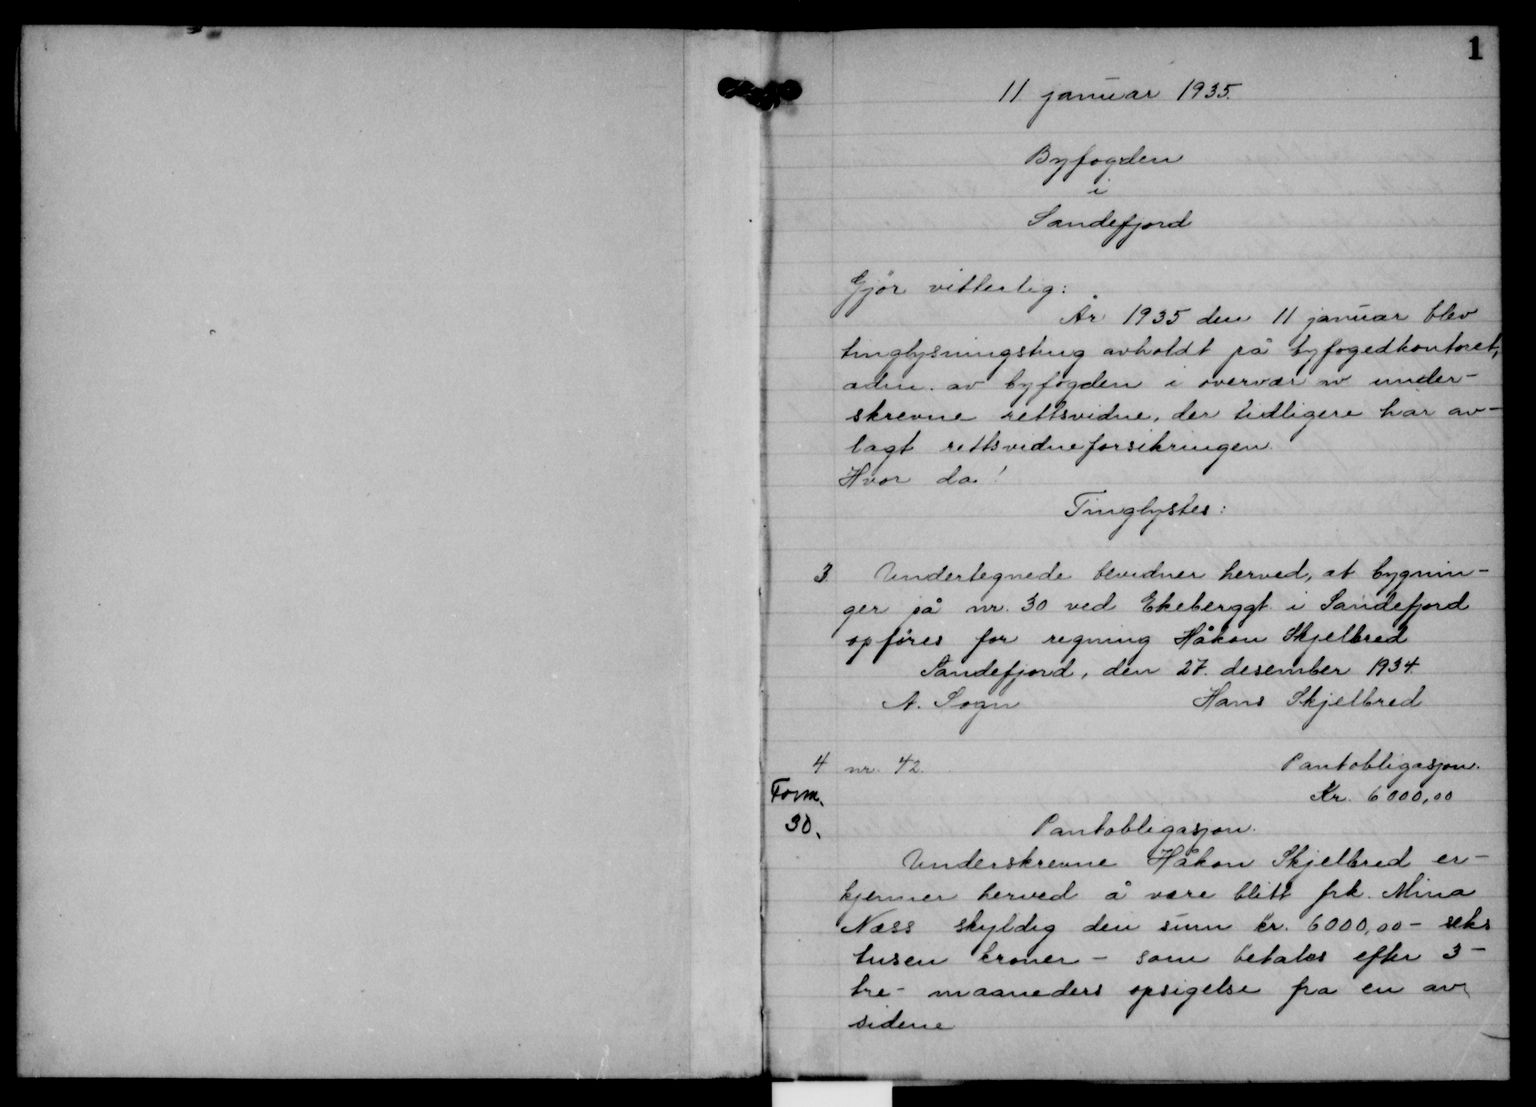 1
11 januar 1935.
Byfogden
i
Sandefjord
Gjör vitterlig:
År 1935 den 11 januar blev
tinglysningsting avholdt på byfogedkontoret,
adm. av byfogden i overvær av under-
skrevne rettsvidne, der tidligere har av-
lagt rettsvidneforsikringen.
Hvor da!
Tinglystes:
3. Undertegnede bevidner herved, at bygnin-
ger på nr. 30 ved Ekeberggt i Sandefjord
opføres for regning Håkon Skjelbred
Sandefjord, den 27. desember 1934.
A. Sogn Hans Skjelbred
4 nr. 42. Pantobligasjon.
Form. Kr. 6000,00
30. Pantobligasjon.
Underskrevne Håkon Skjelbred er-
kjenner herved å være blitt frk. Mina
Næss skyldig den sum kr. 6000,00 - seks
tusen kroner - som betales efter 3 -
tre - maaneders opsigelse fra en av
sidene